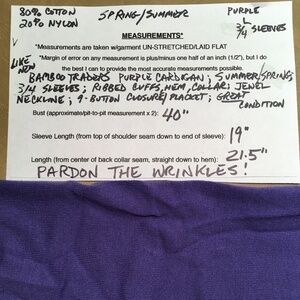 80% COTTON SPRING/SUMMER PURPLE
20% NYLON L
3/4 SLEEVES
MEASUREMENTS*
*Measurements are taken w/garment UN-STRETCHED/LAID FLAT
*Margin of error on any measurement is plus/minus one half of an inch (1/2"), but I do
the best I can to provide the most accurate measurements possible.
LIKE NEW
BAMBOO TRADERS PURPLE CARDIGAN; SUMMER/SPRING;
3/4 SLEEVES; RIBBED CUFFS, HEM, COLLAR; JEWEL
NECKLINE; 9-BUTTON CLOSURE/PLACKET; GREAT
CONDITION
Bust (approximate/pit-to-pit measurement x 2): 40"
Sleeve Length (from top of shoulder seam down to end of sleeve): 19"
Length (from center of back collar seam, straight down to hem): 21.5"
PARDON THE WRINKLES!